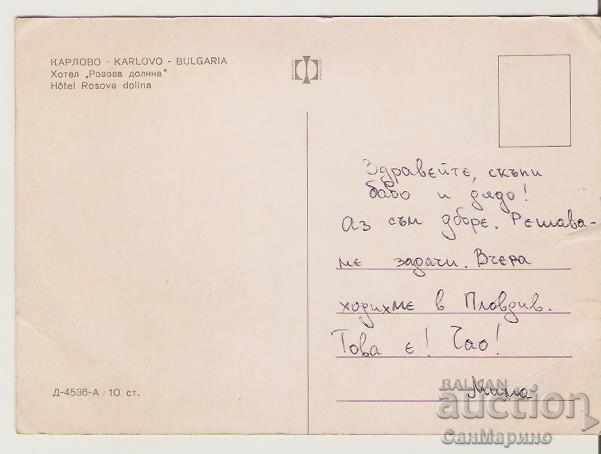 КАРЛОВО - KARLOVO - BULGARIA
Хотел „Розова долина"
Hôtel Rosova dolina
Здравейте, скъпи
бабо и дядо!
Аз съм добре. Решава-
ме задачи. Вчера
ходихме в Пловдив.
Това е! Чао!
Д-4536-А / 10 ст.
BALKAN
auction
СанМарино